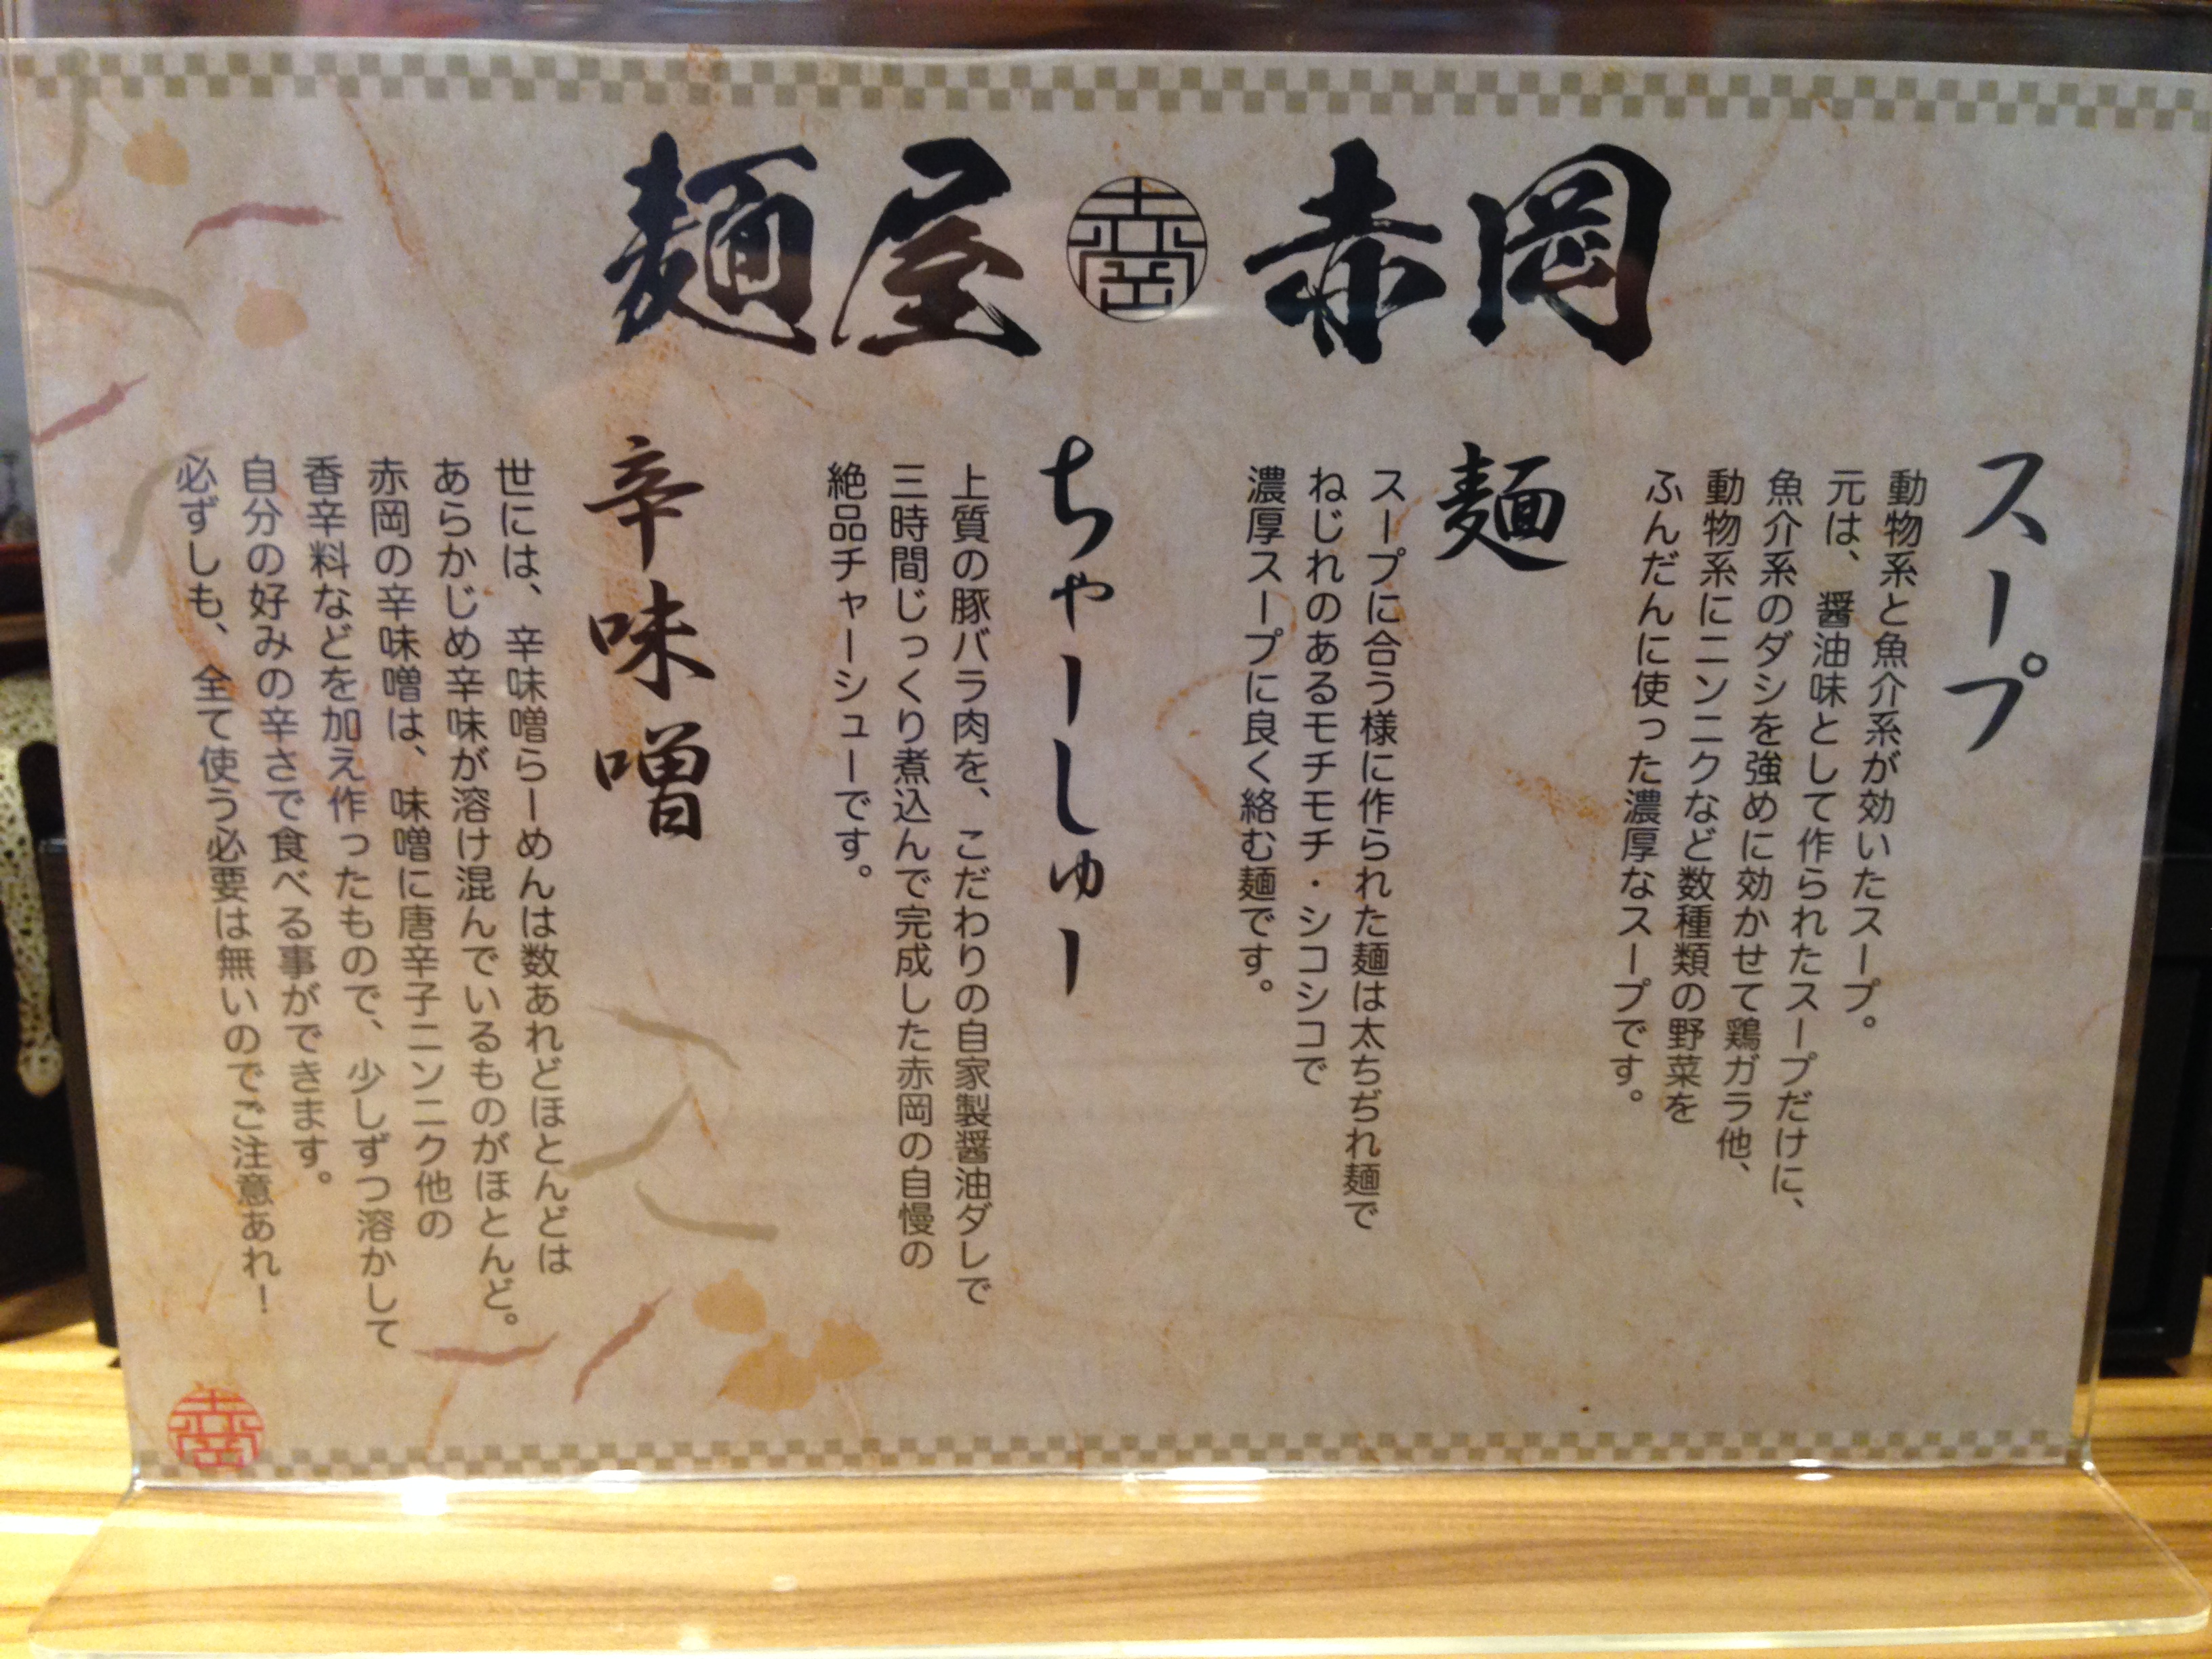 麺屋 赤岡
スープ
動物系と魚介系が効いたスープ。
元は、醤油味として作られたスープだけに、
魚介系のダシを強めに効かせて鶏ガラ他、
動物系にニンニクなど数種類の野菜を
ふんだんに使った濃厚なスープです。
麺
スープに合う様に作られた麺は太ちぢれ麺で
ねじれのあるモチモチ・シコシコで
濃厚スープに良く絡む麺です。
ちゃーしゅー
上質の豚バラ肉を、こだわりの自家製醤油ダレで
三時間じっくり煮込んで完成した赤岡の自慢の
絶品チャーシューです。
辛味噌
世には、辛味噌らーめんは数あれどほとんどは
あらかじめ辛味が溶け混んでいるものがほとんど。
赤岡の辛味噌は、味噌に唐辛子ニンニク他の
香辛料などを加え作ったもので、少しずつ溶かして
自分の好みの辛さで食べる事ができます。
必ずしも、全て使う必要は無いのでご注意あれ！